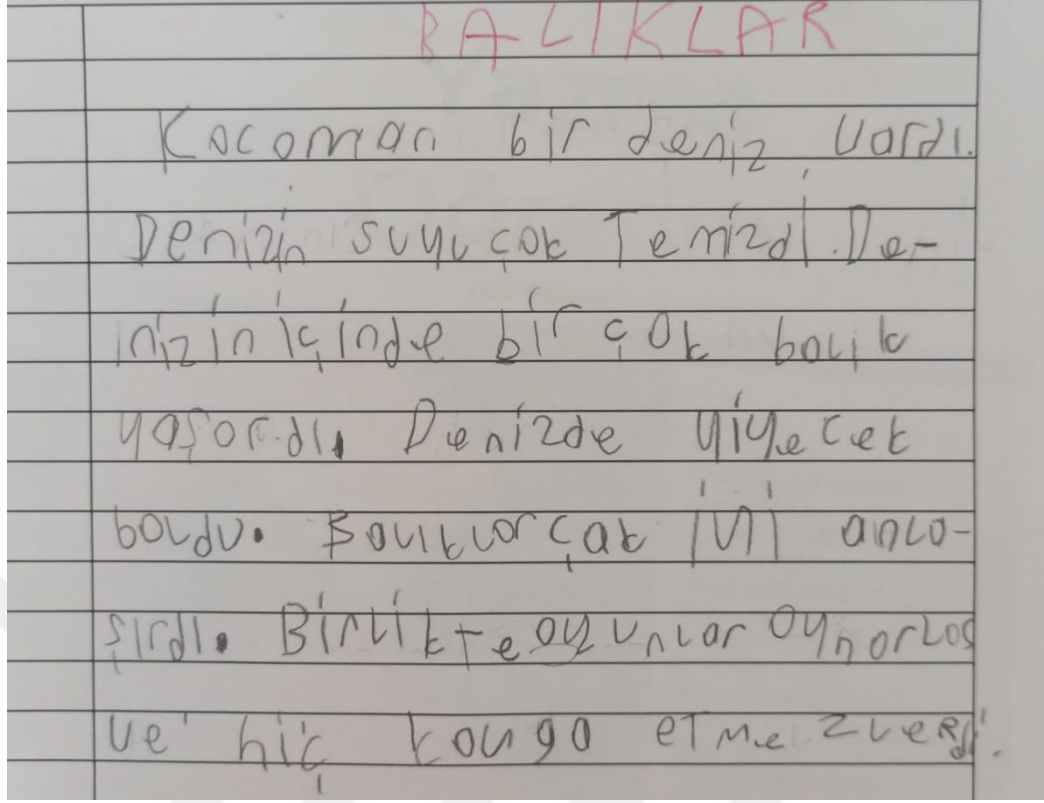 BALIKLAR
Kocoman bir deniz vardı.
Denizin suyu çok Temizdi. De-
nizin içinde bir çok balık
yaşardı. Denizde yiyecek
boldu. Balıklar çok iyi anla-
şırdı. Birlikte oyunlar oynarlar
ve hiç kavga etmezlerdi.